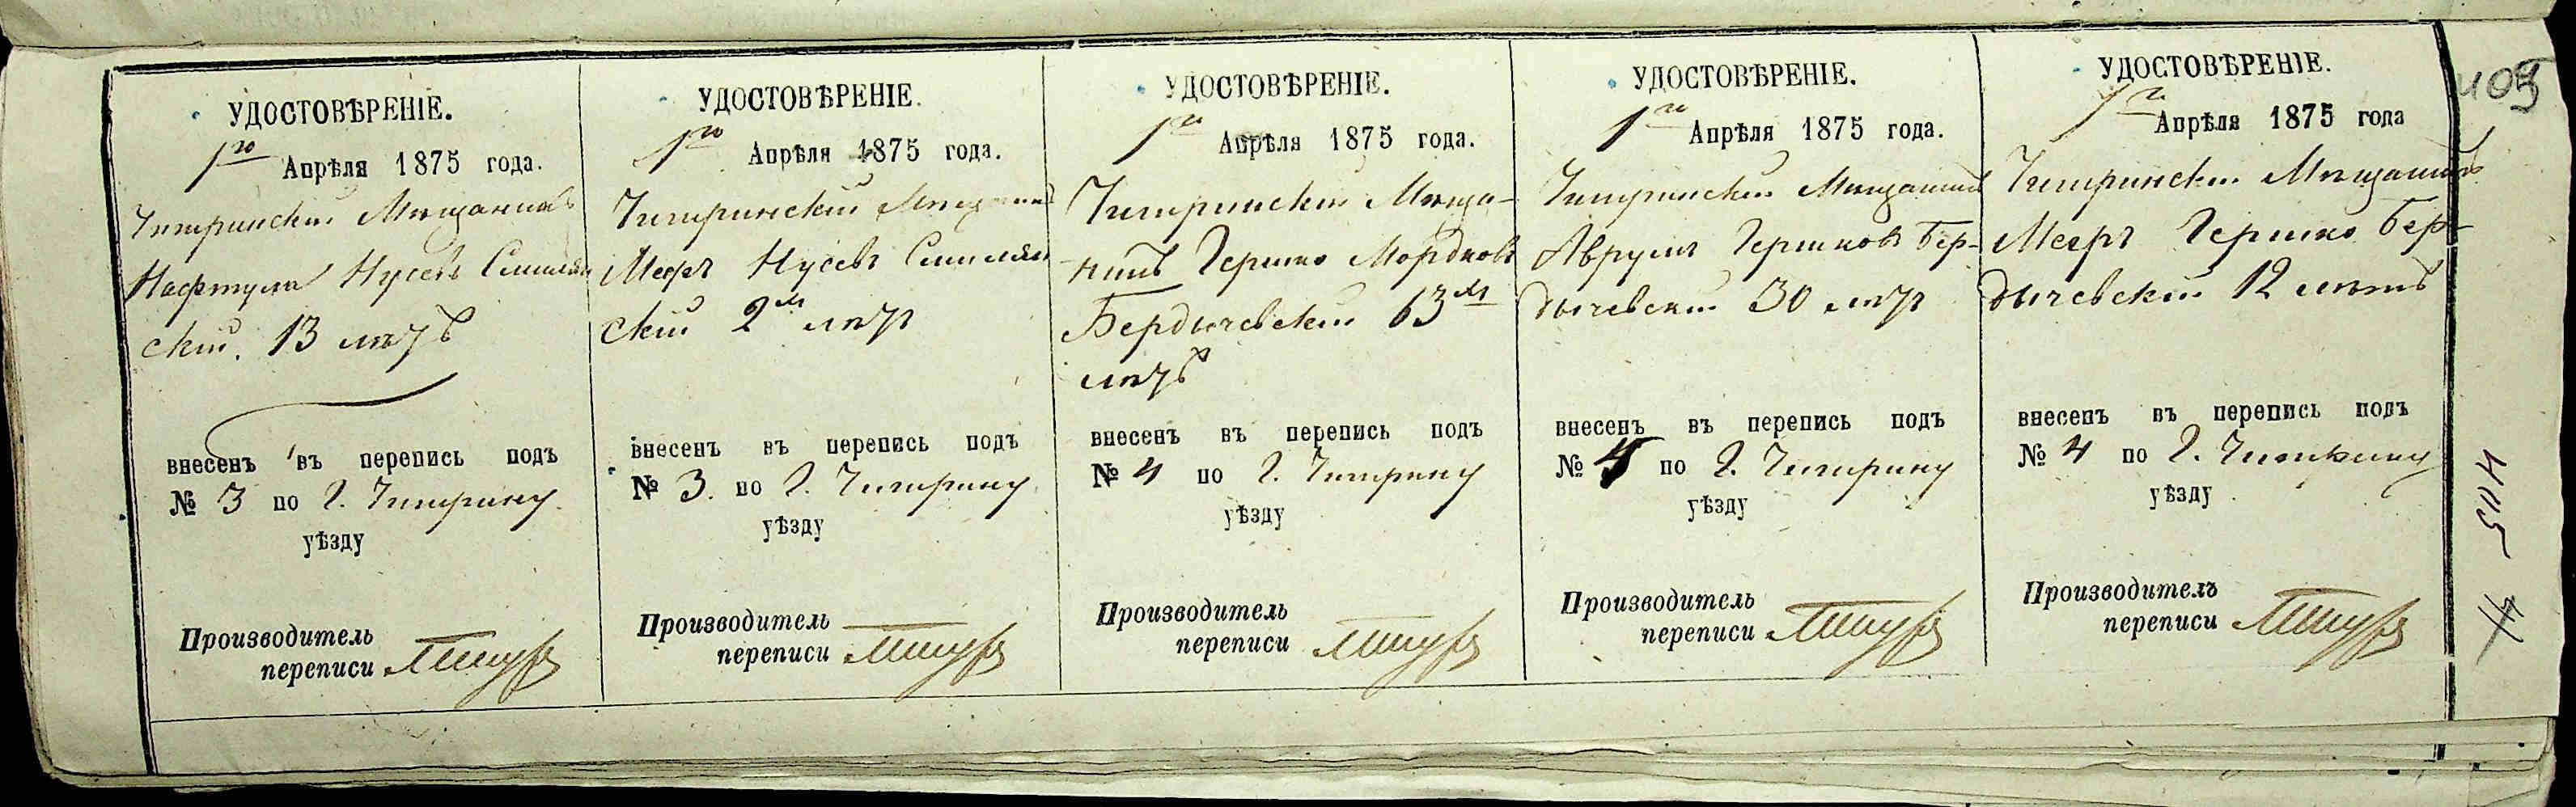 УДОСТОВѢРЕНІЕ.
1го Апрѣля 1875 года.
Чигиринскій Мѣщанинъ
Нафтула Нусевъ Смилян
скій. 13 лѣтъ
внесенъ въ перепись подъ
№ 3 по г. Чигирину
уѣзду
Производитель
переписи
УДОСТОВѢРЕНІЕ.
1го Апрѣля 1875 года.
Чигиринскій Мѣщанинъ
Мееръ Нусевъ Смилян
скій 2хъ лѣтъ
внесенъ въ перепись подъ
№ 3. по г. Чигирину
уѣзду
Производитель
переписи
УДОСТОВѢРЕНІЕ.
1го Апрѣля 1875 года.
Чигиринскій Мѣща-
нинъ Гершко Мордковъ
Бердичевскій 63хъ
лѣтъ
внесенъ въ перепись подъ
№ 4 по г. Чигирину
уѣзду
Производитель
переписи
УДОСТОВѢРЕНІЕ.
1го Апрѣля 1875 года.
Чигиринскій Мѣщанинъ
Аврумъ Гершковъ Бер-
дичевскій 30 лѣтъ
внесенъ въ перепись подъ
№ 4 по г. Чигирину
уѣзду
Производитель
переписи
УДОСТОВѢРЕНІЕ.
1го Апрѣля 1875 года
Чигиринскій Мѣщанинъ
Мееръ Гершко Бер-
дичевскій 12 лѣтъ
внесенъ въ перепись подъ
№ 4 по г. Чигирину
уѣзду
Производитель
переписи
405